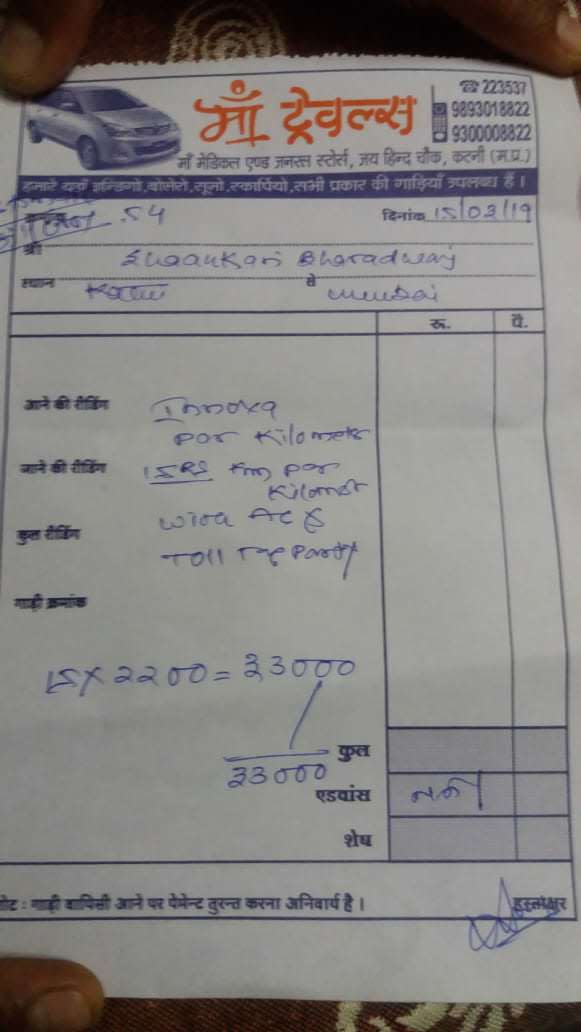 ☎ 223537
9893018822
9300008822
माँ ट्रेवल्स
माँ मेडिकल एण्ड जनरल स्टोर्स, जय हिन्द चौक, कटनी (म.प्र.)
हमारे यहाँ इन्डिगो, बोलेरो, सूमो, स्कार्पियो, सभी प्रकार की गाड़ियाँ उपलब्ध हैं।
54 दिनांक 15/03/19
श्री Bharadwaj
स्थान से Mumbai
रू. पै.
आने की रीडिंग Innova
par Kilometer
जाने की रीडिंग 15 RS Km par
Kilomet
कुल रीडिंग With AC &
Toll Tax Party
गाड़ी क्रमांक
15 X 2200 = 33000
33000 कुल
एडवांस
शेष
नोट : गाड़ी वापिसी आने पर पेमेन्ट तुरन्त करना अनिवार्य है।
हस्ताक्षर